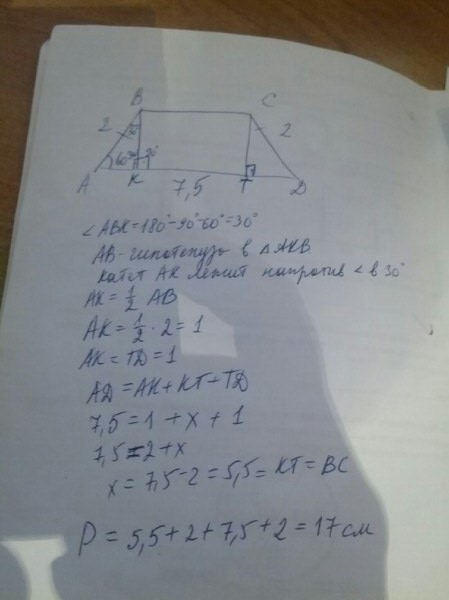 B C
2 30° 2
60° 90° 90°
A K 7,5 T D
∠ABK=180°-90°-60°=30°
AB-гипотенуза в △AKB
катет AK лежит напротив ∠ в 30°
AK=1/2 AB
AK=1/2·2=1
AK=TD=1
AD=AK+KT+TD
7,5=1+x+1
7,5=2+x
x=7,5-2=5,5=KT=BC
P=5,5+2+7,5+2=17см